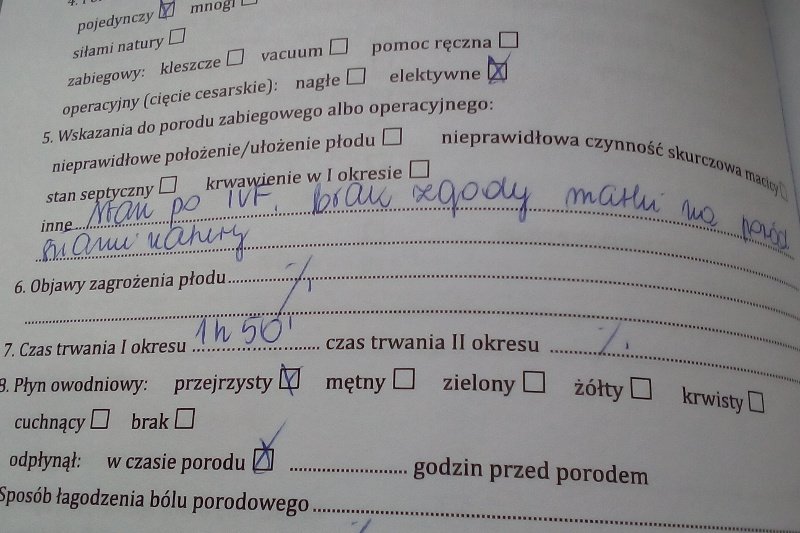 pojedynczy ☒ mnogi ☐
siłami natury ☐
zabiegowy: kleszcze ☐ vacuum ☐ pomoc ręczna ☐
operacyjny (cięcie cesarskie): nagłe ☐ elektywne ☒
5. Wskazania do porodu zabiegowego albo operacyjnego:
nieprawidłowe położenie/ułożenie płodu ☐ nieprawidłowa czynność skurczowa macicy ☐
stan septyczny ☐ krwawienie w I okresie ☐
inne Stan po IVF, brak zgody matki na poród
siłami natury
6. Objawy zagrożenia płodu
7. Czas trwania I okresu 1h 50' czas trwania II okresu
8. Płyn owodniowy: przejrzysty ☒ mętny ☐ zielony ☐ żółty ☐ krwisty ☐
cuchnący ☐ brak ☐
odpłynął: w czasie porodu ☒ godzin przed porodem
Sposób łagodzenia bólu porodowego